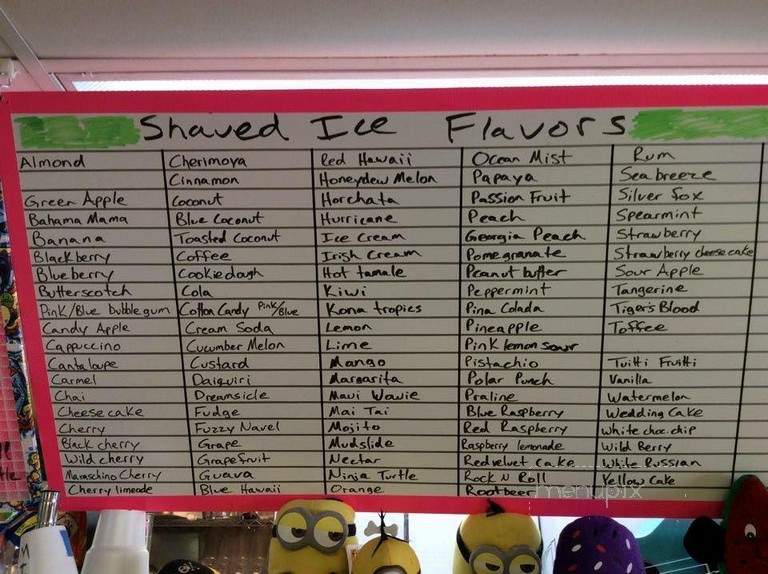 Shaved Ice Flavors
Almond
Green Apple
Bahama Mama
Banana
Blackberry
Blueberry
Butterscotch
Pink/Blue bubblegum
Candy Apple
Cappuccino
Cantaloupe
Carmel
Chai
Cheesecake
Cherry
Black cherry
Wild cherry
Maraschino Cherry
Cherry limeade
Cherimoya
Cinnamon
Coconut
Blue Coconut
Toasted Coconut
Coffee
Cookiedough
Cola
Cotton Candy Pink/Blue
Cream Soda
Cucumber Melon
Custard
Daiquiri
Dreamsicle
Fudge
Fuzzy Navel
Grape
Grapefruit
Guava
Blue Hawaii
Red Hawaii
Honeydew Melon
Horchata
Hurricane
Ice Cream
Irish Cream
Hot tamale
Kiwi
Kona tropics
Lemon
Lime
Mango
Margarita
Maui Wowie
Mai Tai
Mojito
Mudslide
Nectar
Ninja Turtle
Orange
Ocean Mist
Papaya
Passion Fruit
Peach
Georgia Peach
Pomegranate
Peanut butter
Peppermint
Pina Colada
Pineapple
Pink lemon sour
Pistachio
Polar Punch
Praline
Blue Raspberry
Red Raspberry
Raspberry lemonade
Redvelvet Cake
Rock N Roll
Rootbeer
Rum
Seabreeze
Silver fox
Spearmint
Strawberry
Strawberry cheesecake
Sour Apple
Tangerine
Tiger's Blood
Toffee
Tuitti Fruitti
Vanilla
Watermelon
Wedding Cake
White choc. chip
Wild Berry
White Russian
Yellow Cake
menupix